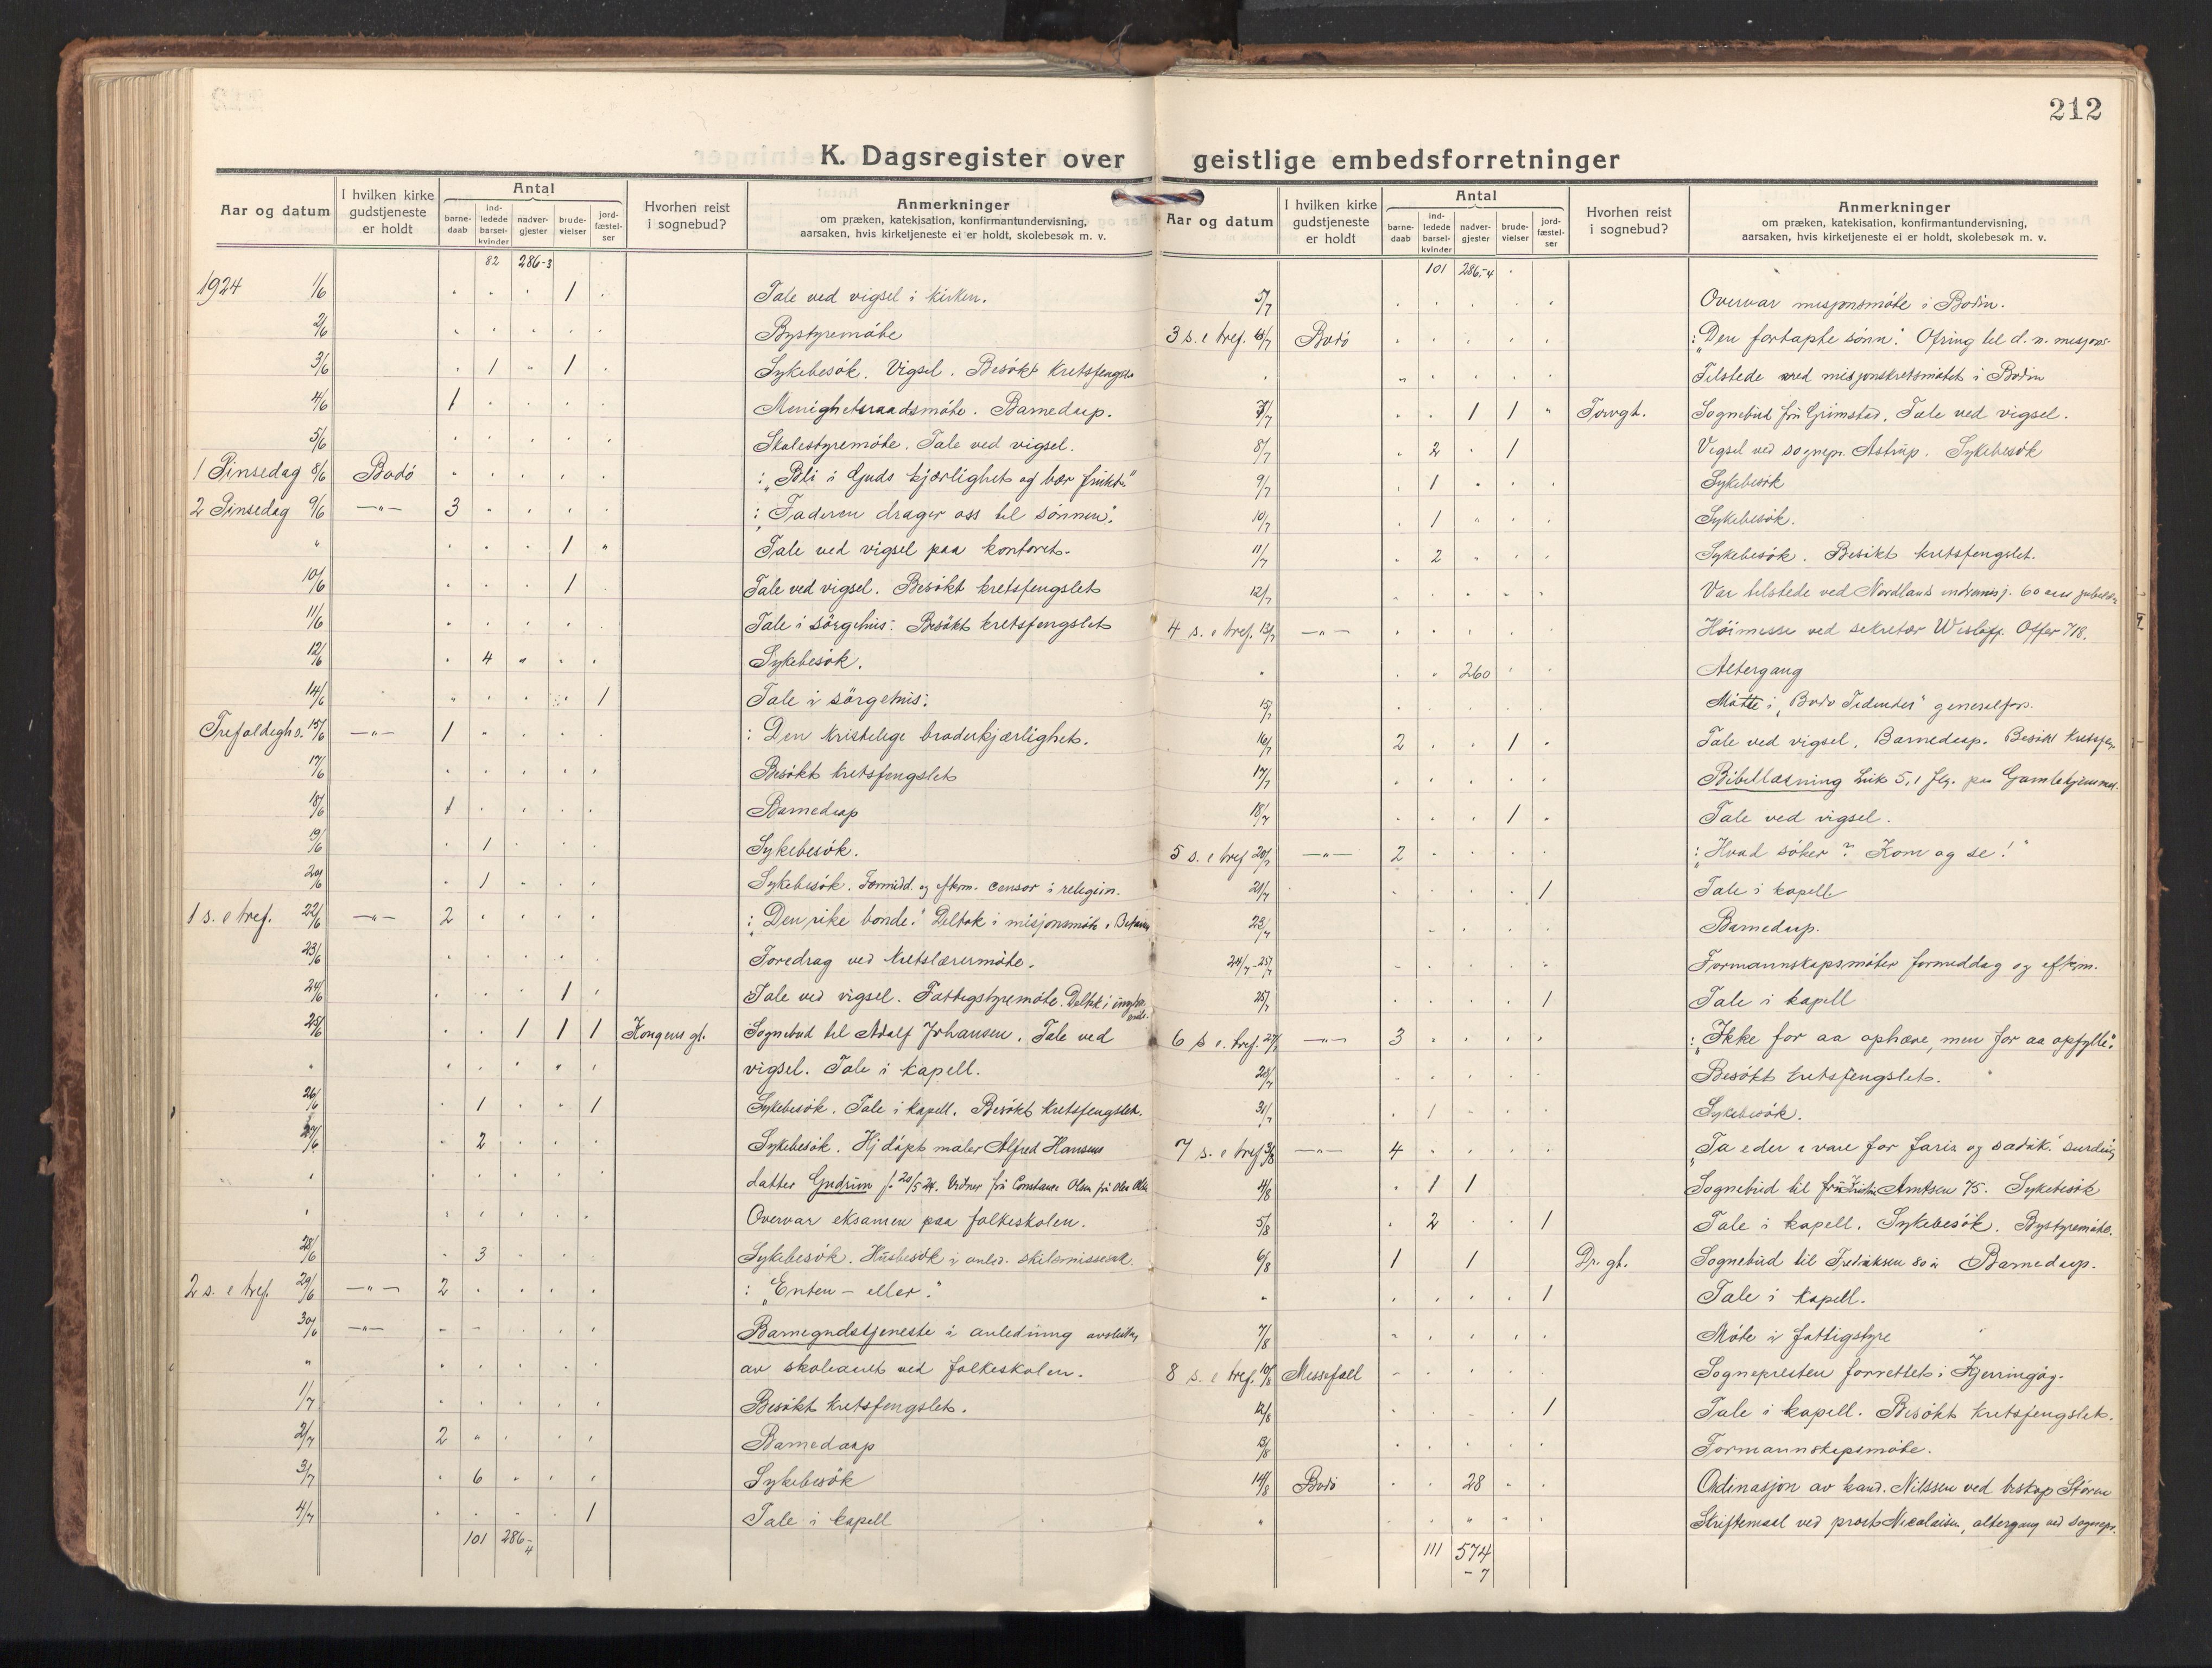 212
K. Dagsregister over geistlige embedsforretninger
Aar og datum | I hvilken kirke gudstjeneste er holdt | Antal: barne-daab | ind-ledede barsel-kvinder | nadver-gjester | brude-vielser | jord-fæstel-ser | Hvorhen reist i sognebud? | Anmerkninger om præken, katekisation, konfirmantundervisning, aarsaken, hvis kirketjeneste ei er holdt, skolebesøk m. v.
82 286-3
1924 1/6 1 Tale ved vigsel i kirken.
2/6 Bystyremöte
3/6 1 1 Sykebesök. Vigsel. Besökt kretsfengslet
4/6 1 Menighetsraadsmöte. Barnedaap.
5/6 Skolestyremöte. Tale ved vigsel.
1 Pinsedag 8/6 Bodö : „Bli i Guds kjærlighet og bær frukt"
2 Pinsedag 9/6 —"— 3 : „Faderen drager oss til sönnen".
" 1 Tale ved vigsel paa kontoret.
10/6 1 Tale ved vigsel. Besökt kretsfengslet
11/6 Tale i sörgehus. Besökt kretsfengslet
12/6 4 Sykebesök.
14/6 1 Tale i sörgehus.
Trefoldigh.s. 15/6 —"— 1 : Den kristelige broderkjærlighet.
17/6 Besökt kretsfengslet
18/6 1 Barnedaap
19/6 1 Sykebesök.
20/6 1 Sykebesök. Formidd. og efterm. censor i religion.
1 s. e tref. 22/6 —"— 2 : „Den rike bonde." Deltok i misjonsmöte i
23/6 Foredrag ved kretslærermöte.
24/6 1 Tale ved vigsel. Fattigstyremöte. Deltok i
25/6 1 1 1 Kongens gt. Sognebud til Adolf Johansen. Tale ved
" vigsel. Tale i kapell.
26/6 1 1 Sykebesök. Tale i kapell. Besökt kretsfengslet.
27/6 2 Sykebesök. Hj döpt maler Alfred Hansens
" datter Gudrun f. 20/5 24. Vidner fru Constanse Olsen fru
" Overvar eksamen paa folkeskolen.
28/6 3 Sykebesök. Husbesök i anled. skilsmissesak.
2 s. e tref. 29/6 —"— 2 : „Enten – eller."
30/6 —"— Barnegudstjeneste i anledning avslutn.
" av skoleaaret ved folkeskolen.
1/7 Besökt kretsfengslet.
2/7 2 Barnedaap
3/7 6 Sykebesök
4/7 1 Tale i kapell
101 286-4
Aar og datum | I hvilken kirke gudstjeneste er holdt | Antal: barne-daab | ind-ledede barsel-kvinder | nadver-gjester | brude-vielser | jord-fæstel-ser | Hvorhen reist i sognebud? | Anmerkninger om præken, katekisation, konfirmantundervisning, aarsaken, hvis kirketjeneste ei er holdt, skolebesøk m. v.
101 286-4
5/7 Overvar misjonsmöte i Bodin.
3 s. e tref. 6/7 Bodö : „Den fortapte sönn". Ofring til d. n. misjons-
Tilstede ved misjonskretsmötet i Bodin
7/7 1 1 Torvgt. Sognebud fru Grimstad. Tale ved vigsel.
8/7 2 1 Vigsel ved sognepr. Astrup. Sykebesök
9/7 1 Sykebesök
10/7 1 Sykebesök.
11/7 2 Sykebesök. Besökt kretsfengslet.
12/7 Var tilstede ved Nordlands indremisj. 60 aars
4 s. e tref. 13/7 —"— Höimesse ved sekretær Wisløff. Offer 718.
" 260 Altergang
15/7 Mötte i „Bodö Tidendes" generalfors.
16/7 2 1 Tale ved vigsel. Barnedaap. Besökt kretsfen.
17/7 Bibellæsning Luk 5,1 flg. paa Gamlehjemmet.
18/7 1 Tale ved vigsel.
5 s. e tref 20/7 —"— 2 : „Hvad söker ? Kom og se!"
21/7 1 Tale i kapell
23/7 Barnedaap.
24/7-25/7 Formannskapsmöter formeddag og efterm.
25/7 1 Tale i kapell
6 s. e. tref. 27/7 —"— 3 : „Ikke for aa ophæve, men for aa opfylle".
28/7 Besökt kretsfengslet.
31/7 1 Sykebesök.
7 s. e tref 3/8 —"— 4 „Ta eder i vare for faris. og saduk. surdeig"
4/8 1 1 Sognebud til fru Amtsen 75. Sykebesök
5/8 2 1 Tale i kapell. Sykebesök. Bystyremöte.
6/8 1 1 Dr. gt. Sognebud til Fredriksen 80 år Barnedaap.
" 1 Tale i kapell.
7/8 Möte i fattigstyre
8 s. e tref. 10/8 Messefall Sognepresten forrettet i Kjerringöy.
12/8 1 Tale i kapell. Besökt kretsfengslet.
13/8 Formannskapsmöte.
14/8 Bodö 28 Ordinasjon av kand. Nilssen ved biskop Stören
" Skriftemaal ved prost Nicolaisen, altergang ved sognepr.
111 574-7